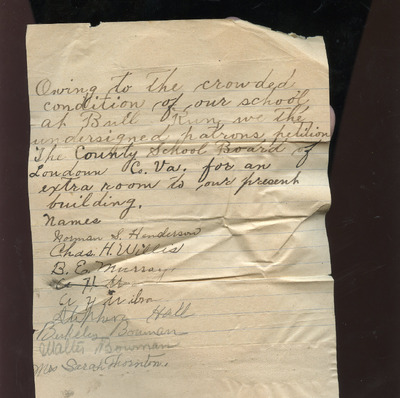 Owing to the crowded
condition of our school,
at Bull Run, we the
undersigned patrons, petition
The County School Board of
Loudoun Co. Va. for an
extra room to our present
building.
Names
Norman S. Henderson
Chas H. Willis
B. E. Murray
Hall
Bowman
Walter Bowman
Mrs Sarah Thornton.